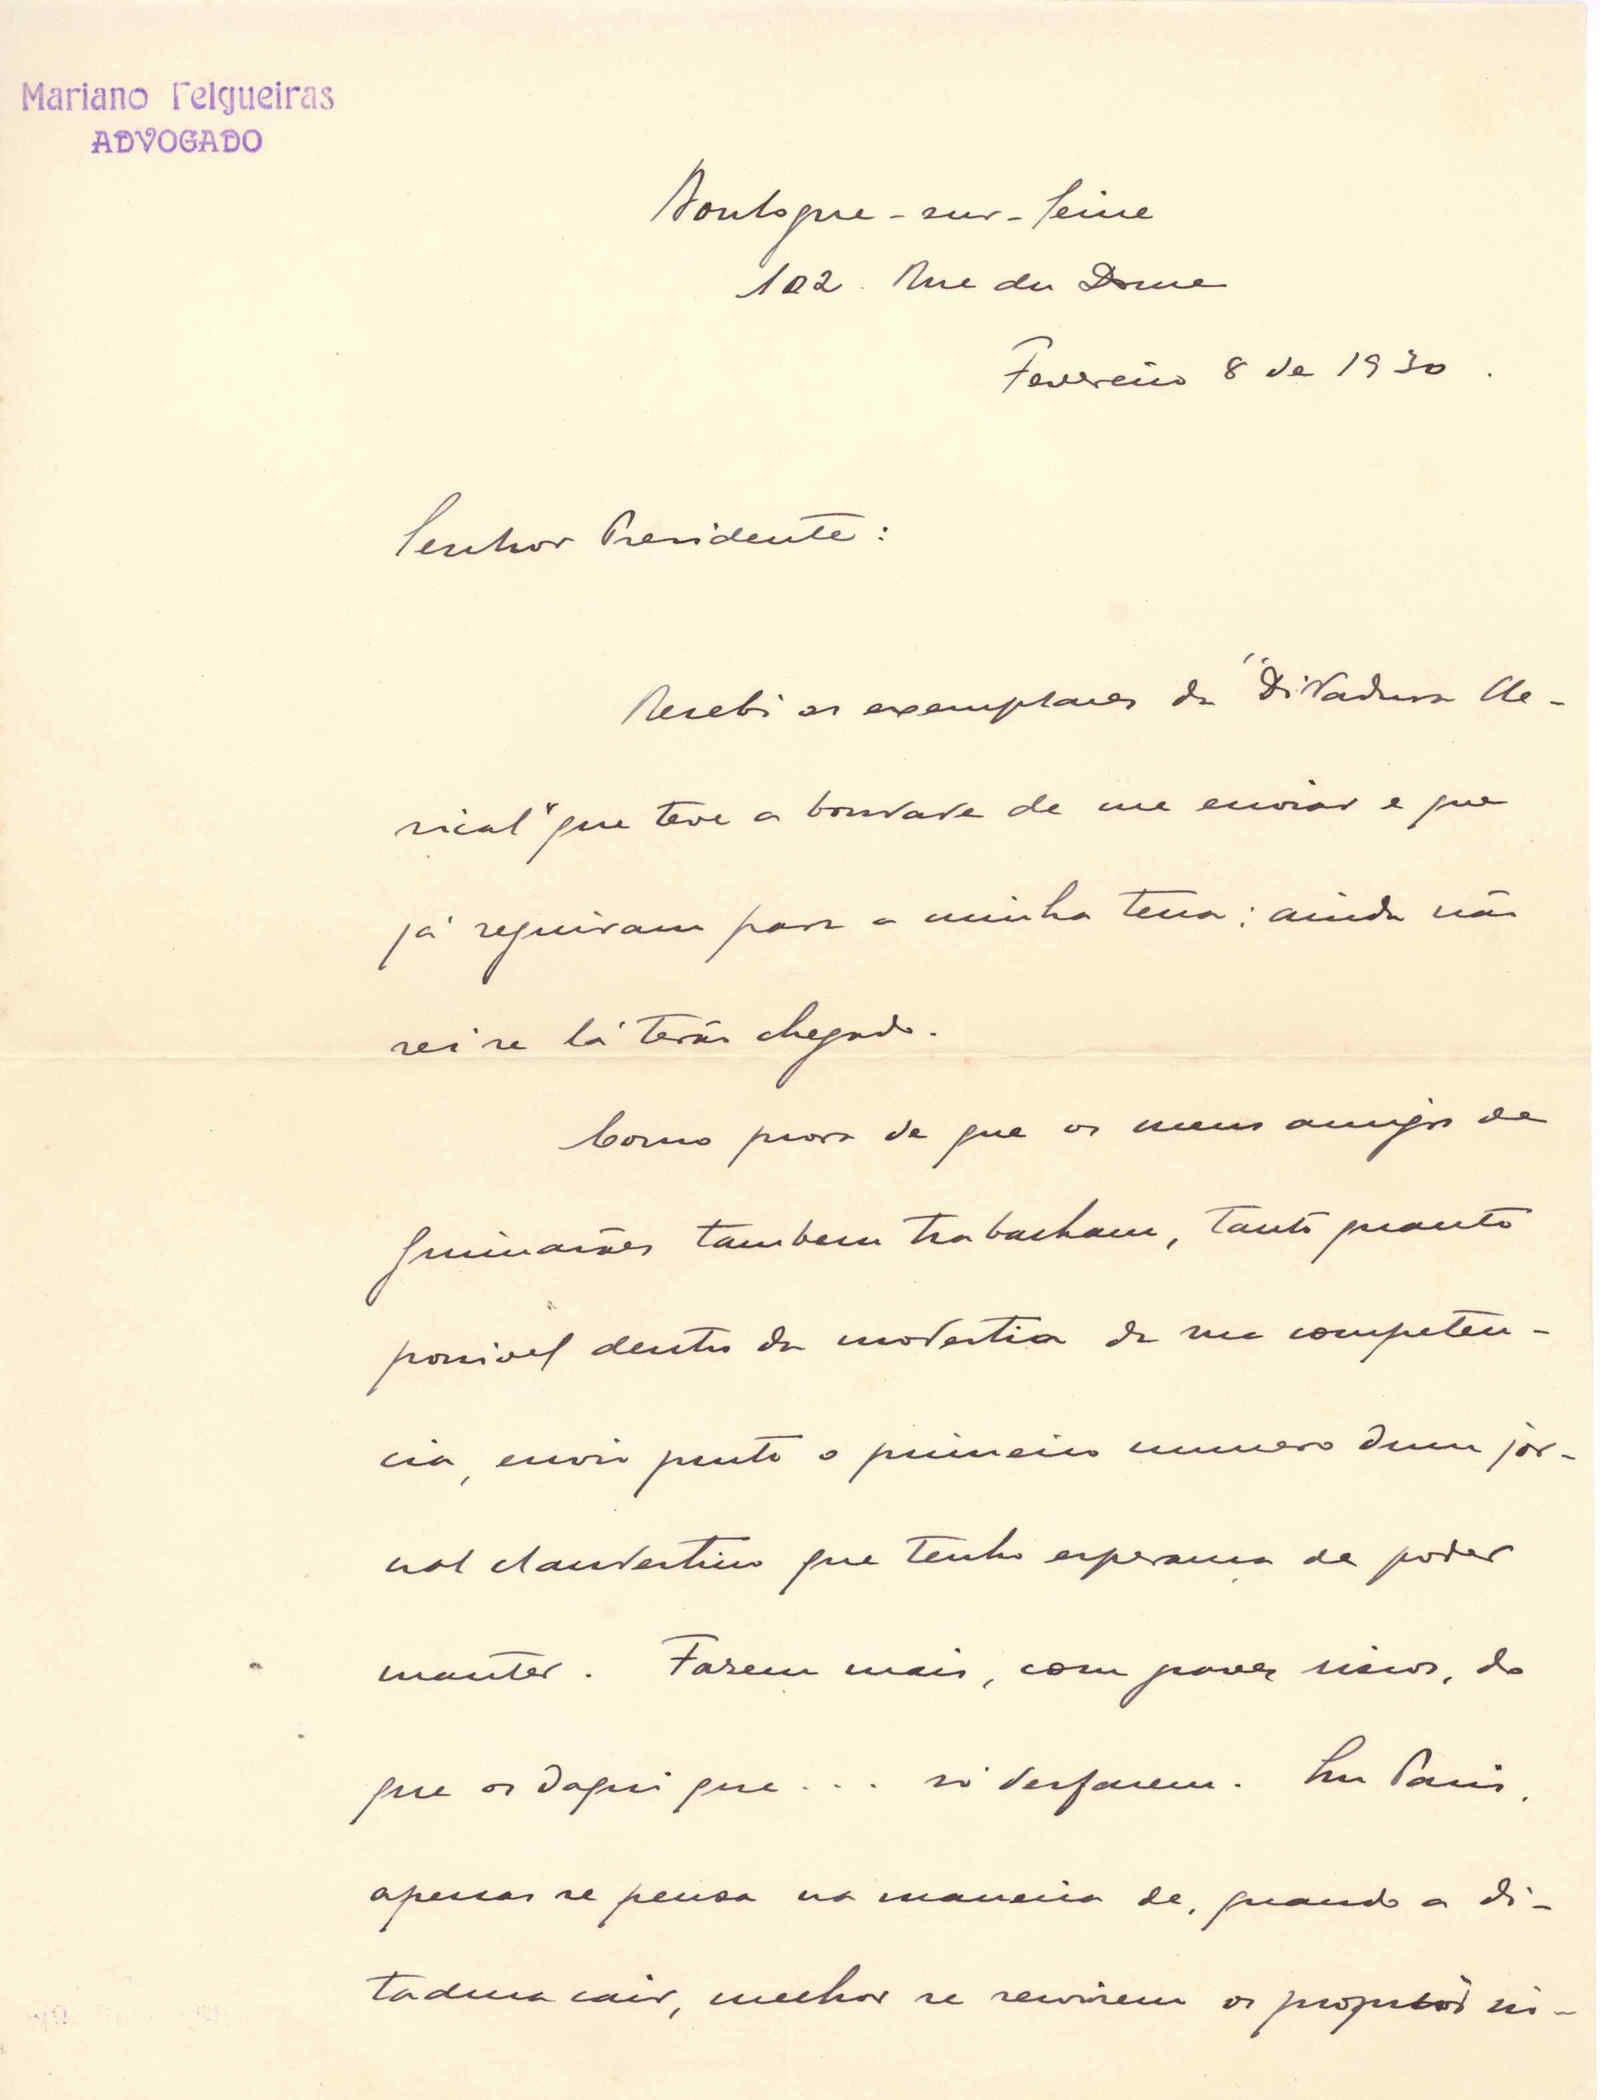 Mariano Felgueiras
ADVOGADO
Boulogne-sur-Seine
102. Rue du Dome
Fevereiro 8 de 1930.
Senhor Presidente:
Recebi os exemplares da "Ditadura Cle-
rical" que teve a bondade de me enviar e que
já seguiram para a minha terra; ainda não
sei se lá terão chegado.
Como prova de que os meus amigos de
Guimarães tambem trabalham, tanto quanto
possivel dentro da modestia da sua competen-
cia, envio junto o primeiro numero dum jor-
nal clandestino que tenho esperança de poder
manter. Fazem mais, com graves riscos, do
que os daqui que... só desfazem. Em Paris,
apenas se pensa na maneira de, quando a di-
tadura cair, melhor se servirem os proprios in-